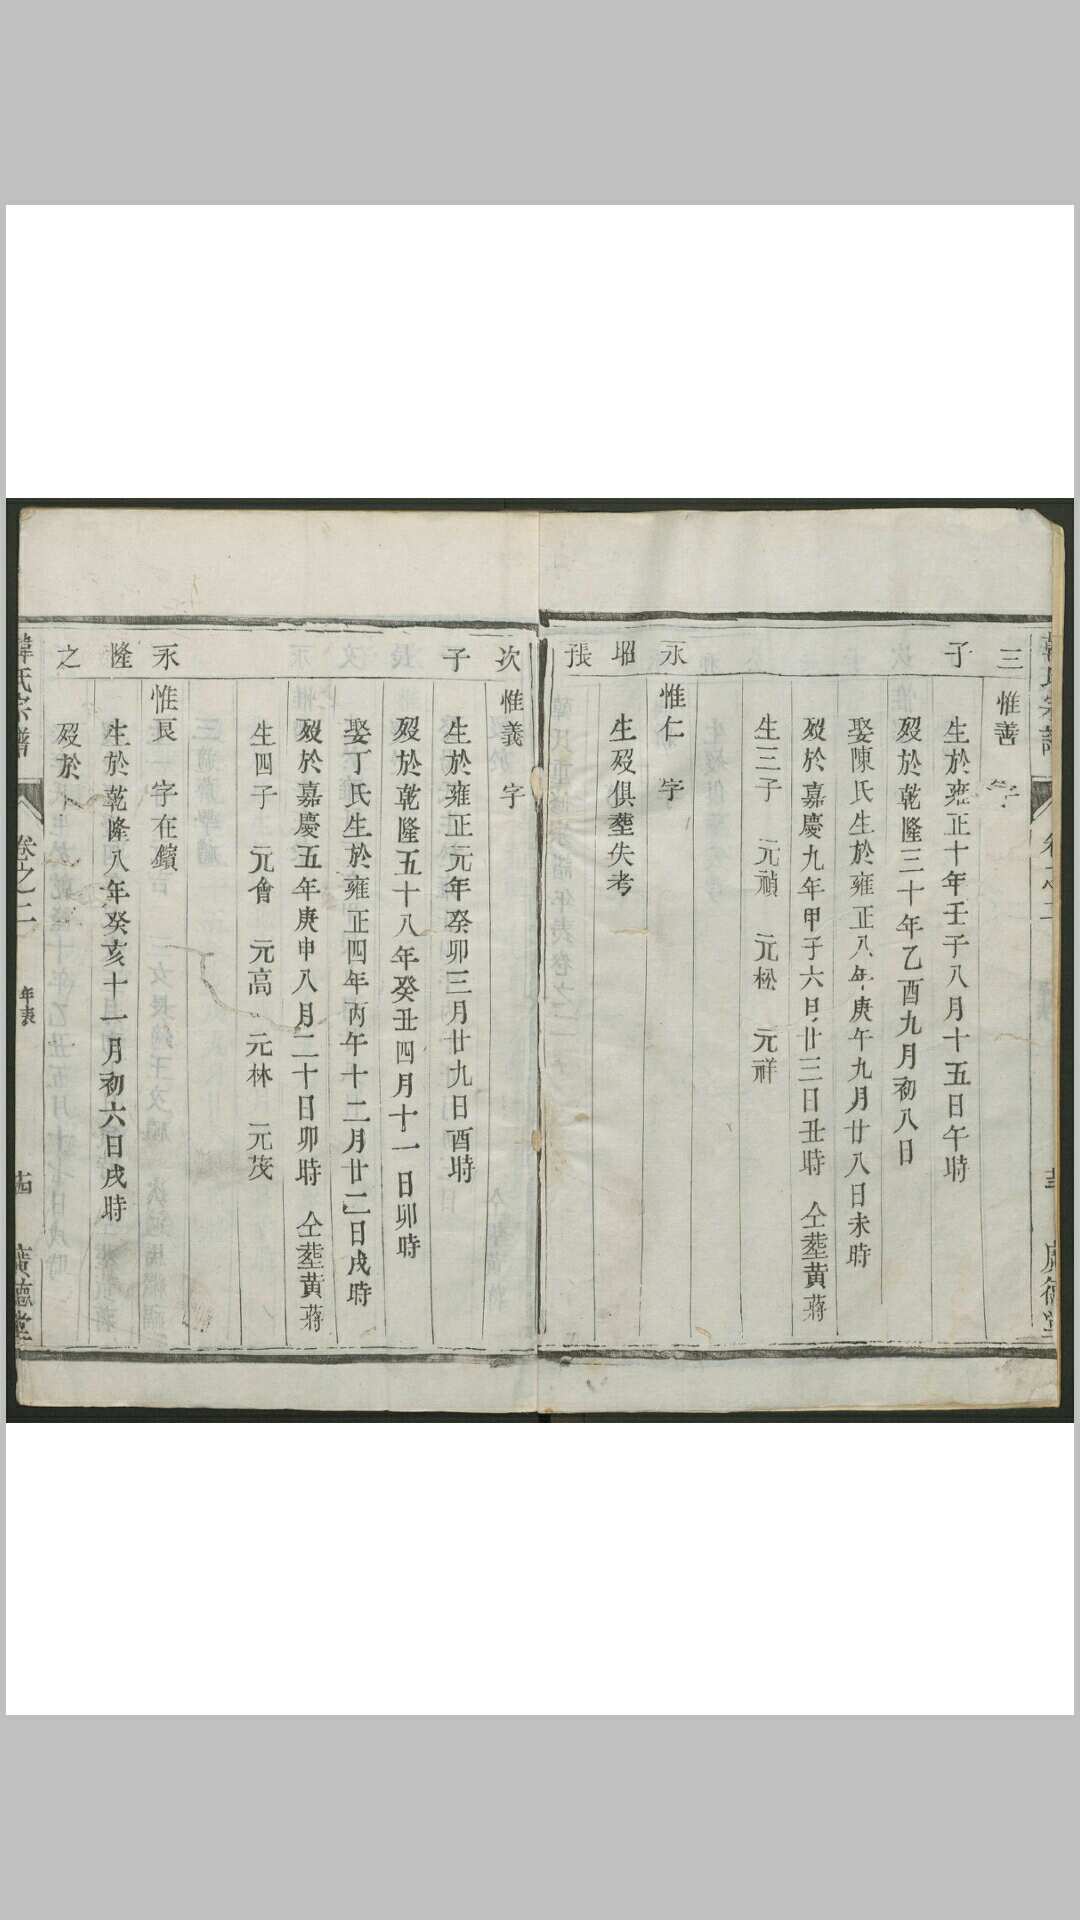 韓氏宗譜
卷之二
廣德堂
三子
惟善 字
生於雍正十年壬子八月十五日午時
歿於乾隆三十年乙酉九月初八日
娶陳氏生於雍正八年庚午九月廿八日未時
歿於嘉慶九年甲子六日廿三日丑時 仝塟黃蔣
生三子 元禎 元松 元祥
永
惟仁 字
生歿俱塟失考
張
次子
惟義 字
生於雍正元年癸卯三月廿九日酉時
歿於乾隆五十八年癸丑四月十一日卯時
娶丁氏生於雍正四年丙午十二月廿二日戌時
歿於嘉慶五年庚申八月二十日卯時 仝塟黃蔣
生四子 元會 元高 元林 元茂
永隆之
惟良 字在鑌
生於乾隆八年癸亥十一月初六日戌時
歿於
韓氏宗譜
卷之二
年表
廣德堂